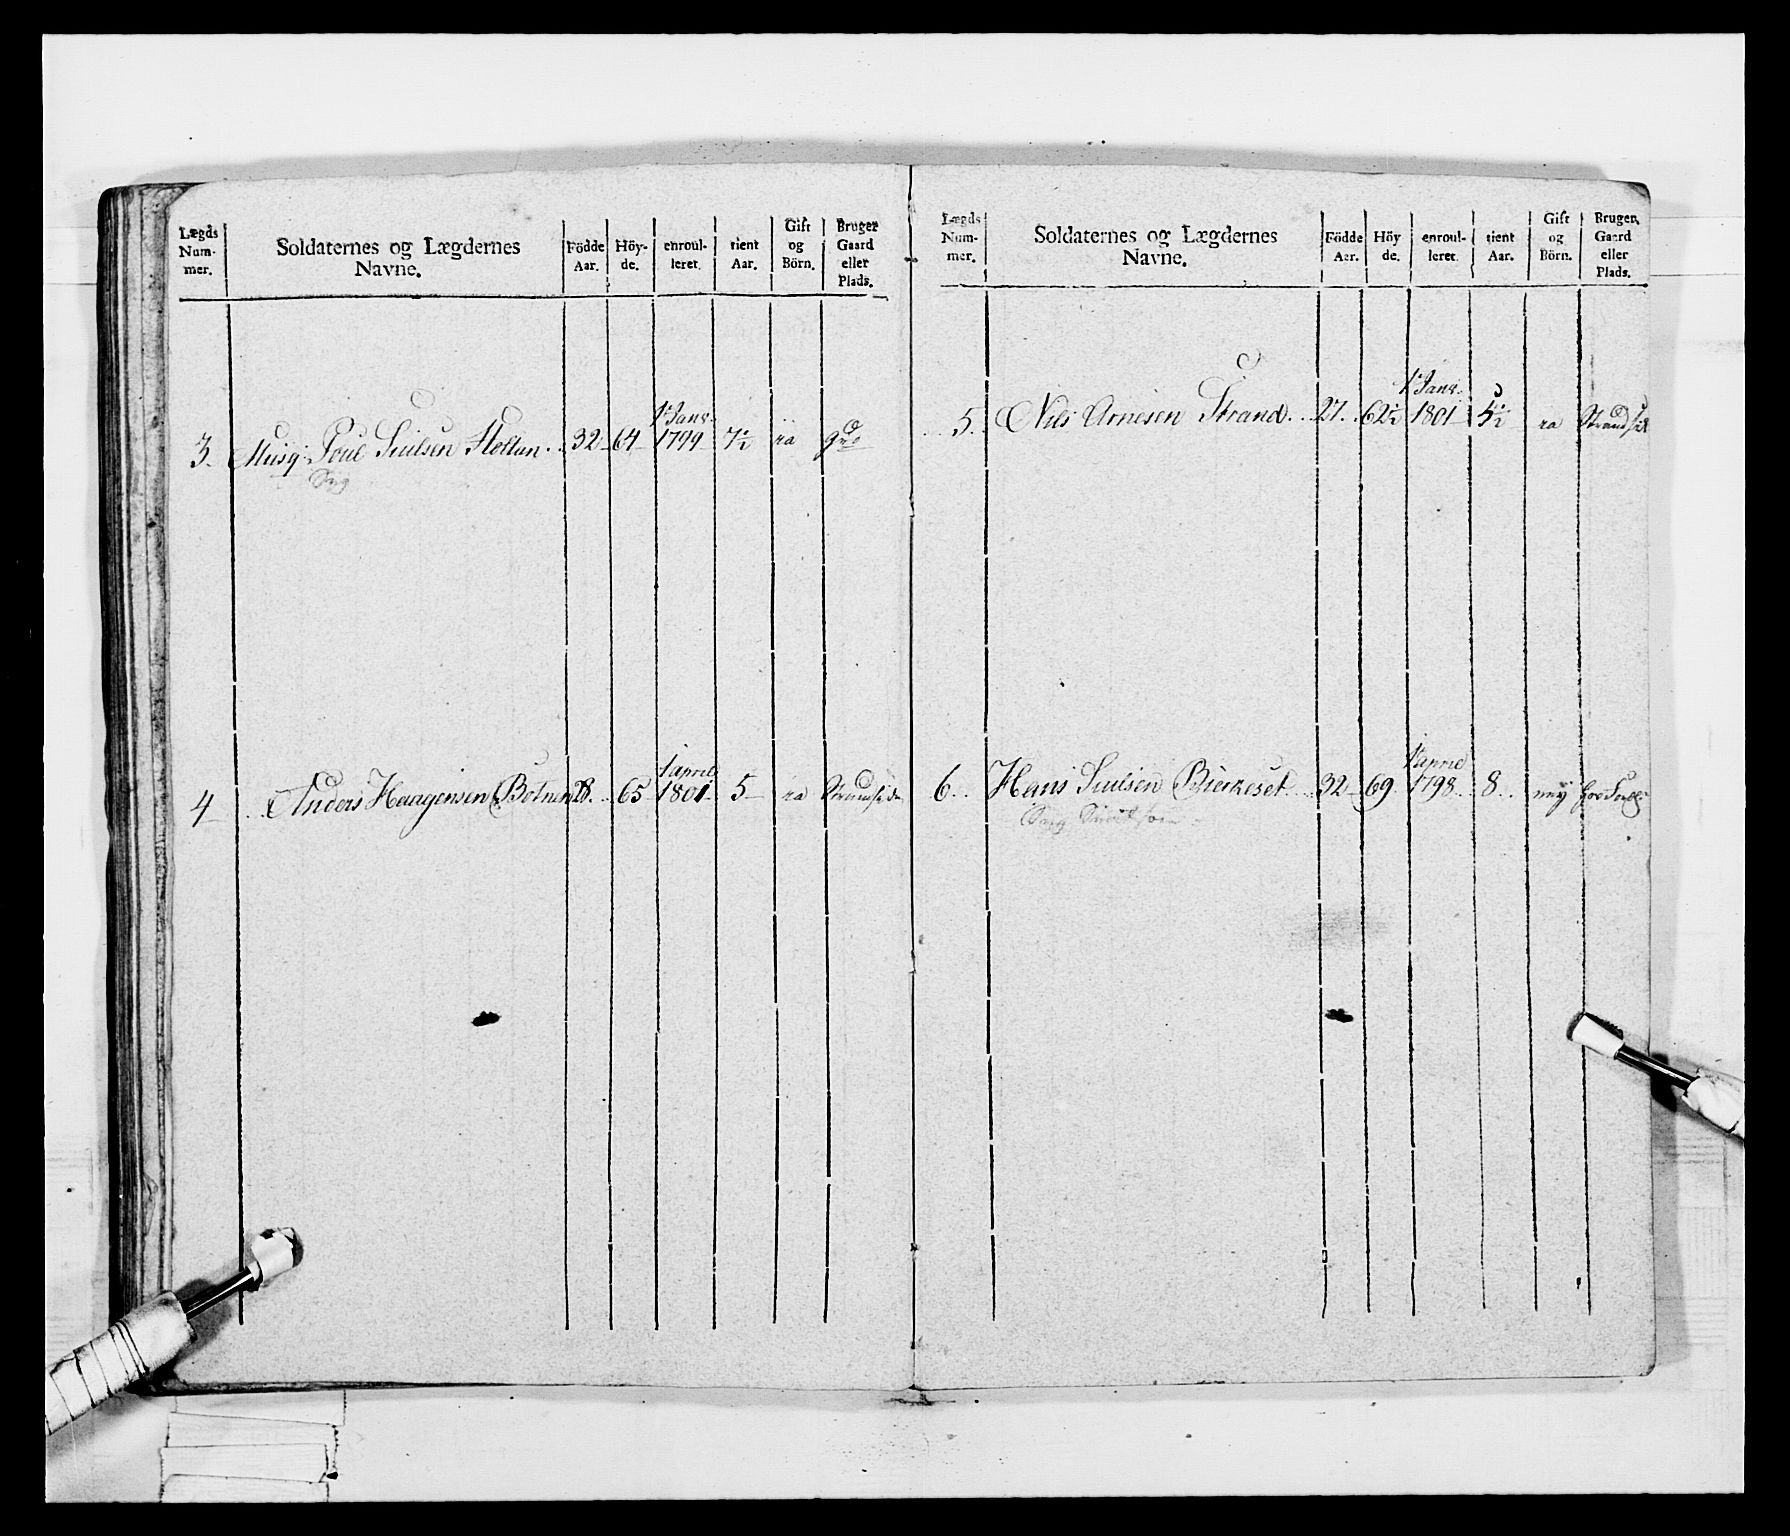 Lægds
Num-
mer.
Soldaternes og Lægdernes
Navne.
Födde
Aar.
Höy-
de.
enroul-
leret.
tient
Aar.
Gift
og
Börn.
Bruger
Gaard
eller
Plads.
3. Musq: Poul Siulsen Holtan. 32 64 1 Janr. 1799 7½
4 Anders Haagensen Botnen 28. 65 1 april 1801 5
Lægds
Num-
mer.
Soldaternes og Lægdernes
Navne.
Födde
Aar.
Höy
de.
enroul-
leret.
tient
Aar.
Gift
og
Börn.
Bruger.
Gaard
eller
Plads.
5. Nils Arnesen Strand. 27. 62½ 1 Janr. 1801 5½
6. Hans Siulsen Bierkeset. 32 69 1 april 1798 8.